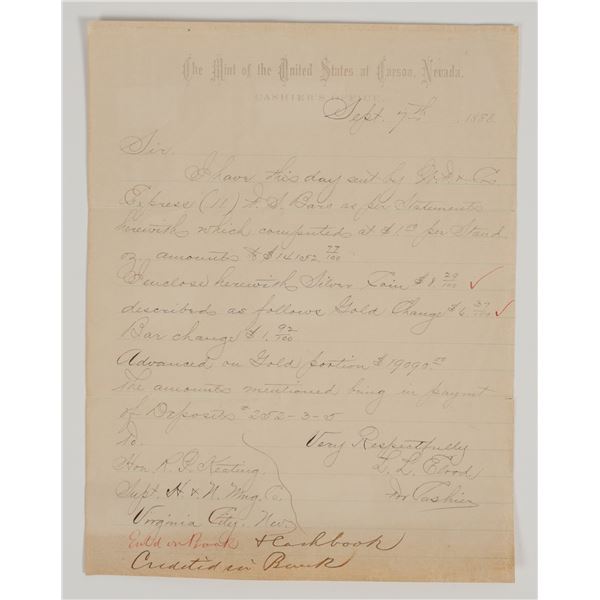 The Mint of the United States at Carson, Nevada.
CASHIER'S OFFICE,
Sept. 7th, 1888
Sir.
I have this day sent by W. F. & Co
Express (10) F. S. Bars as per Statements
herewith which computed at $1.00 per Stand
oz amounts to $14152 77/100
I enclose herewith Silver Coin $8. 29/100 ✓
described as follows Gold Change $6. 37/100 ✓
Bar change $1. 92/100
Advanced on Gold portion $19090.00
The amounts mentioned being in paymt
of Deposits # 252-3-5
To. Very Respectfully
Hon. R. P. Keating. L. L. Elrod
Supt. H & N. Mng. Co. for Cashier
Virginia City. Nev
Ent'd on Book & Cashbook
Credited in Bank